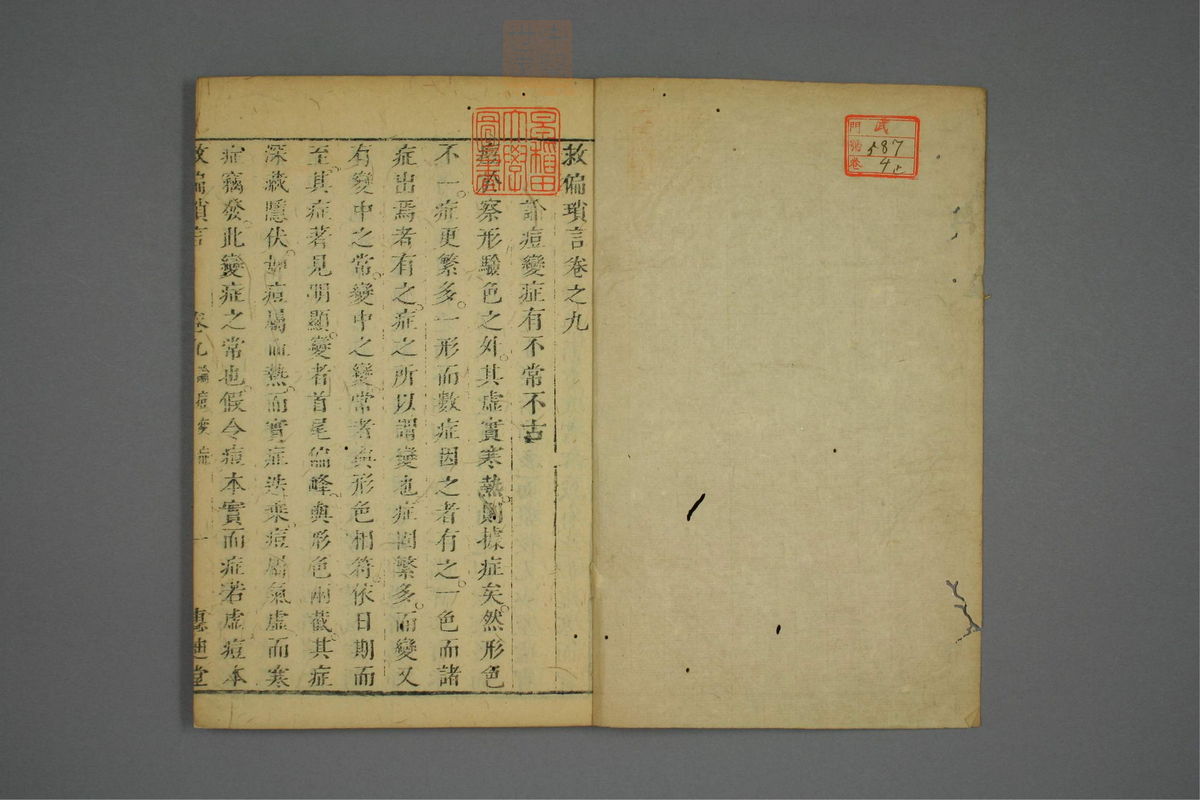 門 武
號 587
卷 4
救偏瑣言卷之九
論痘變症有不常不古
痘於察形驗色之外。其虛實寒熱。則據症矣。然形色
不一。症更繁多。一形而數症因之者有之。一色而諸
症出焉者有之。症之所以謂變也。症固繁多。而變又
有變中之常。變中之變。常者與形色相符。依日期而
至。其症著見明顯。變者首尾偏峰。與形色兩截。其症
深藏隱伏。如痘屬血熱而實。症迭乘。痘屬氣虛而寒
症竊發。此變症之常也。假令痘本實而症若虛。痘本
救偏瑣言 卷九 論痘變症 一 惠迪堂
早稻田大學圖書